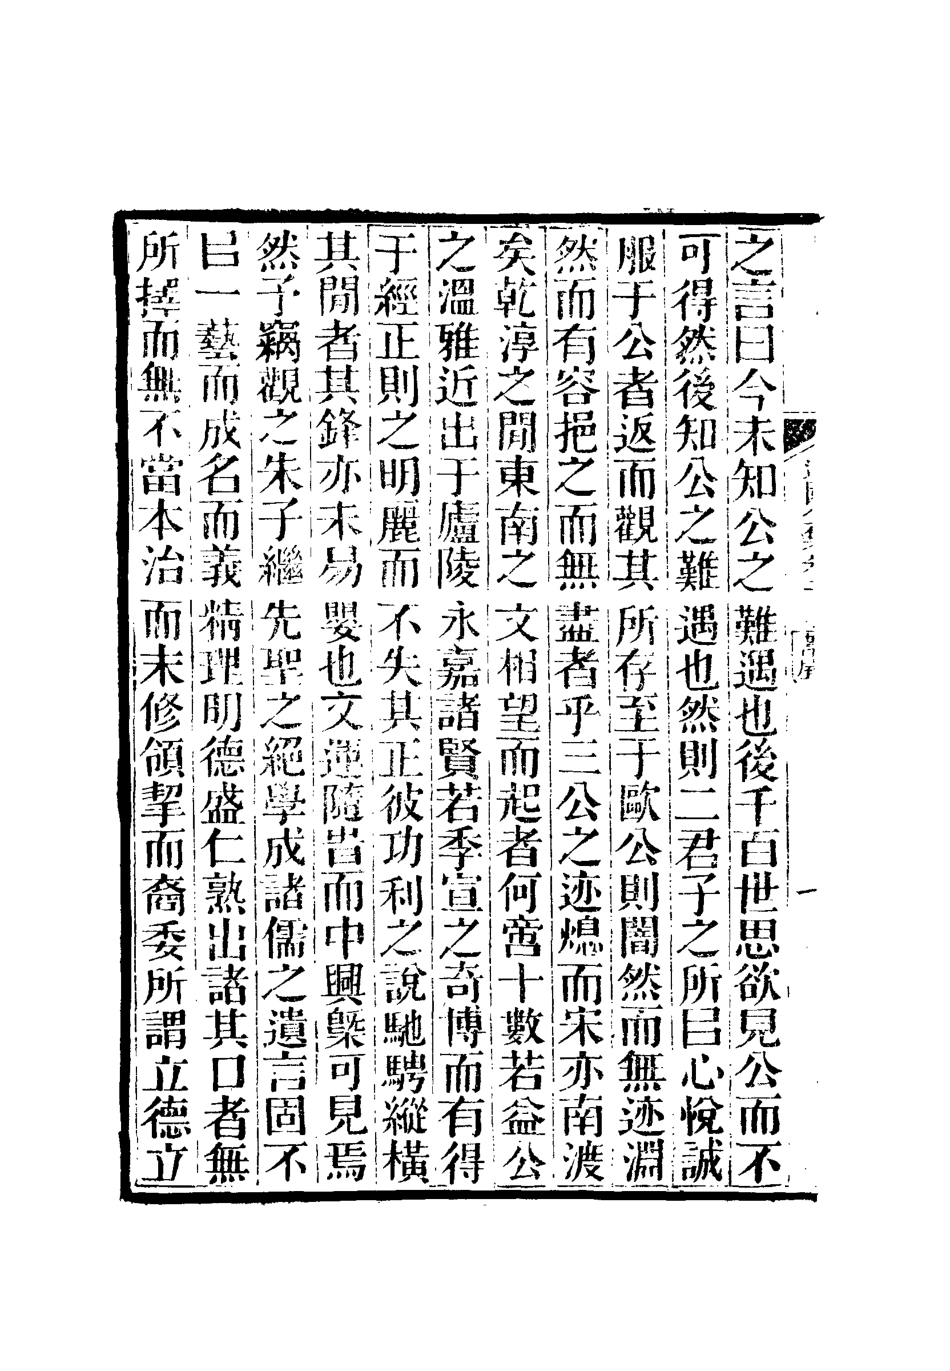 之言曰今未知公之難遇也後千百世思欲見公而不
可得然後知公之難遇也然則二君子之所㠯心悅誠
服于公者返而觀其所存至于歐公則闇然而無迹淵
然而有容挹之而無盡者乎三公之迹熄而宋亦南渡
矣乾淳之閒東南之文相望而起者何啻十數若益公
之溫雅近出于廬陵永嘉諸賢若季宣之奇博而有得
于經正則之明麗而不失其正彼功利之說馳騁縱橫
其閒者其鋒亦未易嬰也文運隨旹而中興槩可見焉
然予竊觀之朱子繼先聖之絕學成諸儒之遺言固不
㠯一藝而成名而義精理明德盛仁熟出諸其口者無
所擇而無不當本治而末修領挈而裔委所謂立德立